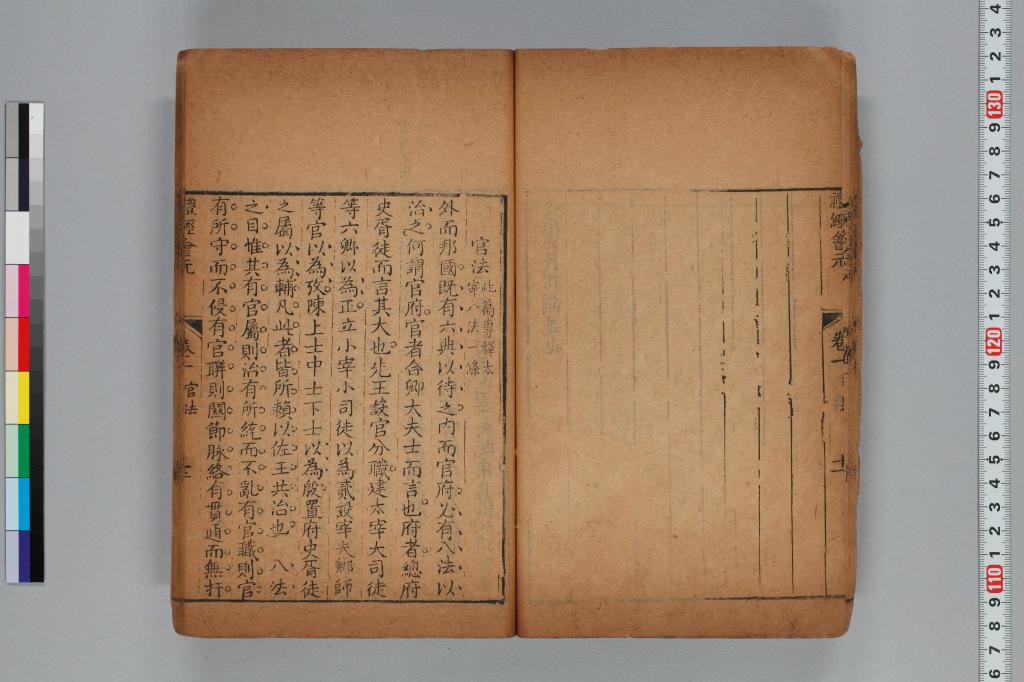 禮經會元
卷一
十一
官法 此篇專釋太宰八法一條
外而邦國既有六典以待之內而官府必有八法以
治之何謂官府官者合卿大夫士而言也府者總府
史胥徒而言其大也先王設官分職建太宰大司徒
等六卿以為正立小宰小司徒以為貳設宰夫鄉師
等官以為攷陳上士中士下士以為殷置府史胥徒
之屬以為輔凡此者皆所賴以佐王共治也 八法
之目惟其有官屬則治有所統而不亂有官職則官
有所守而不侵有官聯則關節脉絡有貫通而無扞
禮經會元
卷一 官法